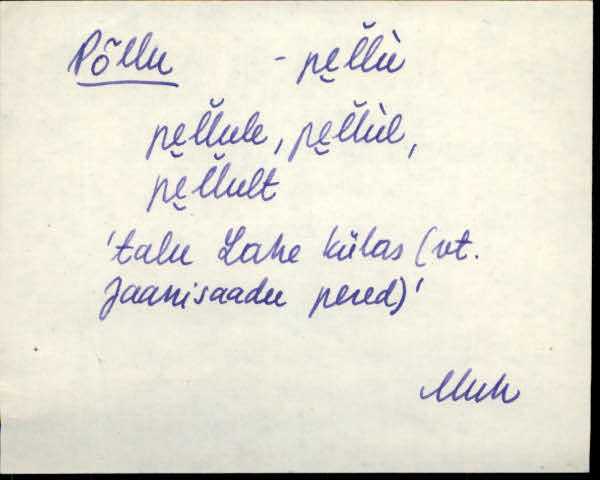 Põllu - pe̬l̆l̆ù
pe̬l̆l̆ule, pe̬l̆l̆ùl,
pe̬l̆l̆ult
'talu Lahe külas (vt.
Jaanisaadu pered)'
Muh